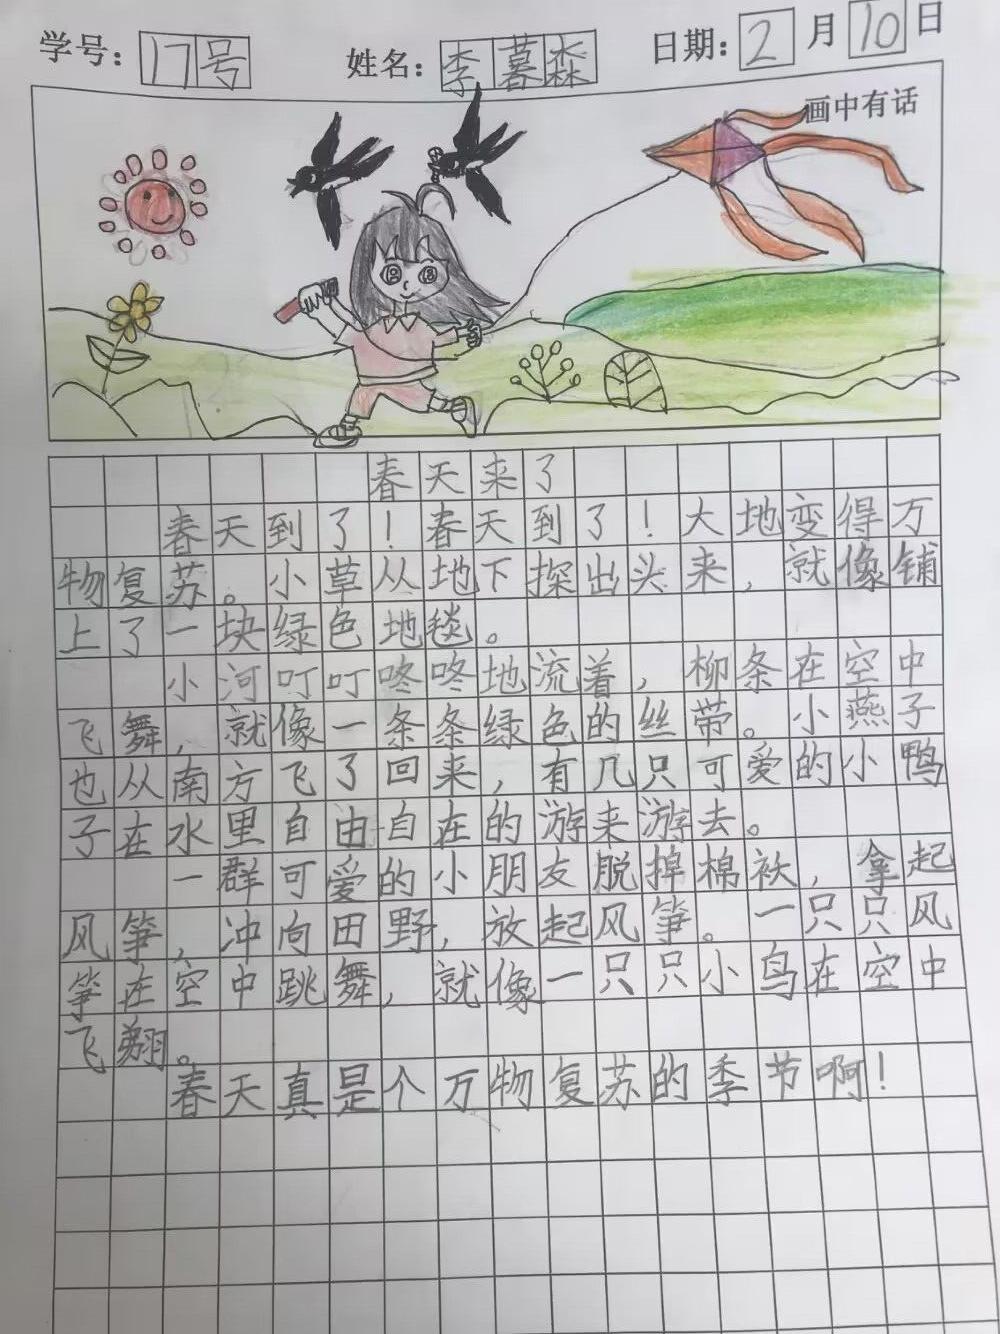 学号：17号 姓名：李暮淼 日期：2月10日
画中有话
春天来了
春天到了！春天到了！大地变得万
物复苏。小草从地下探出头来，就像铺
上了一块绿色地毯。
小河叮叮咚咚地流着，柳条在空中
飞舞，就像一条条绿色的丝带。小燕子
也从南方飞了回来，有几只可爱的小鸭
子在水里自由自在的游来游去。
一群可爱的小朋友脱掉棉袄，拿起
风筝，冲向田野，放起风筝。一只只风
筝在空中跳舞，就像一只只小鸟在空中
飞翔。
春天真是个万物复苏的季节啊！